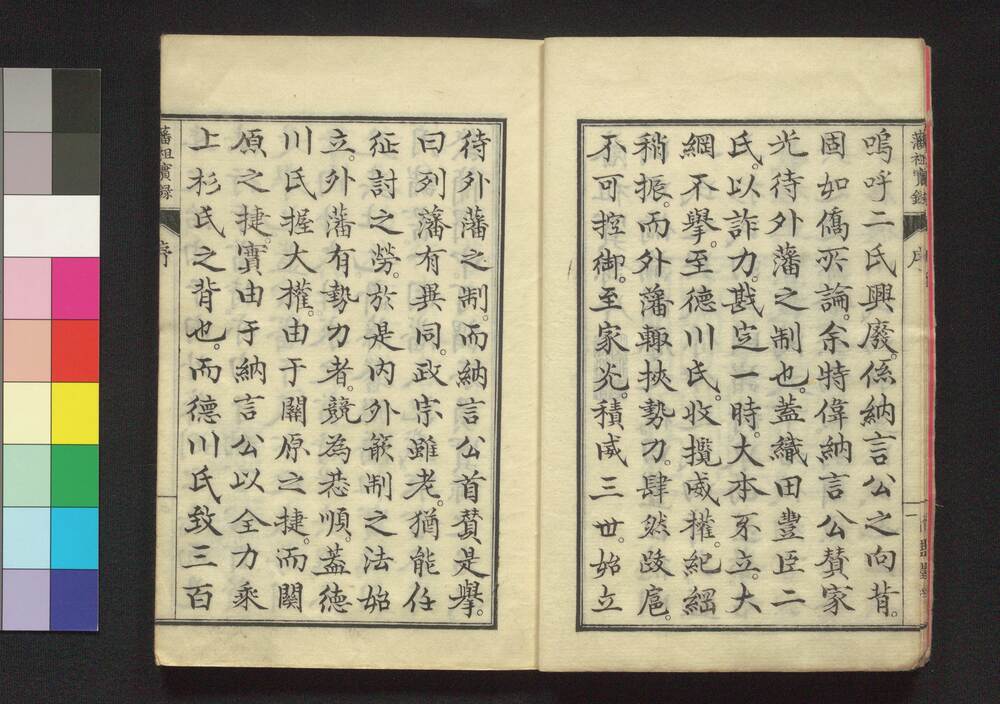 嗚呼二氏興廢。係納言公之向背。
固如僑所論。余特偉納言公賛家
光待外藩之制也。蓋織田豐臣二
氏。以詐力。戡定一時。大本不立。大
綱不擧。至德川氏。收攬威權。紀綱
稍振。而外藩輙挾勢力。肆然跋扈。
不可控御。至家光。積威三世。始立
待外藩之制。而納言公首賛是擧。
曰列藩有異同。政宗雖老。猶能任
征討之勞。於是内外箝制之法始
立。外藩有勢力者。競為恭順。蓋德
川氏握大權。由于關原之捷。而關
原之捷。實由于納言公以全力乘
上杉氏之背也。而德川氏致三百
藩祖實録
序